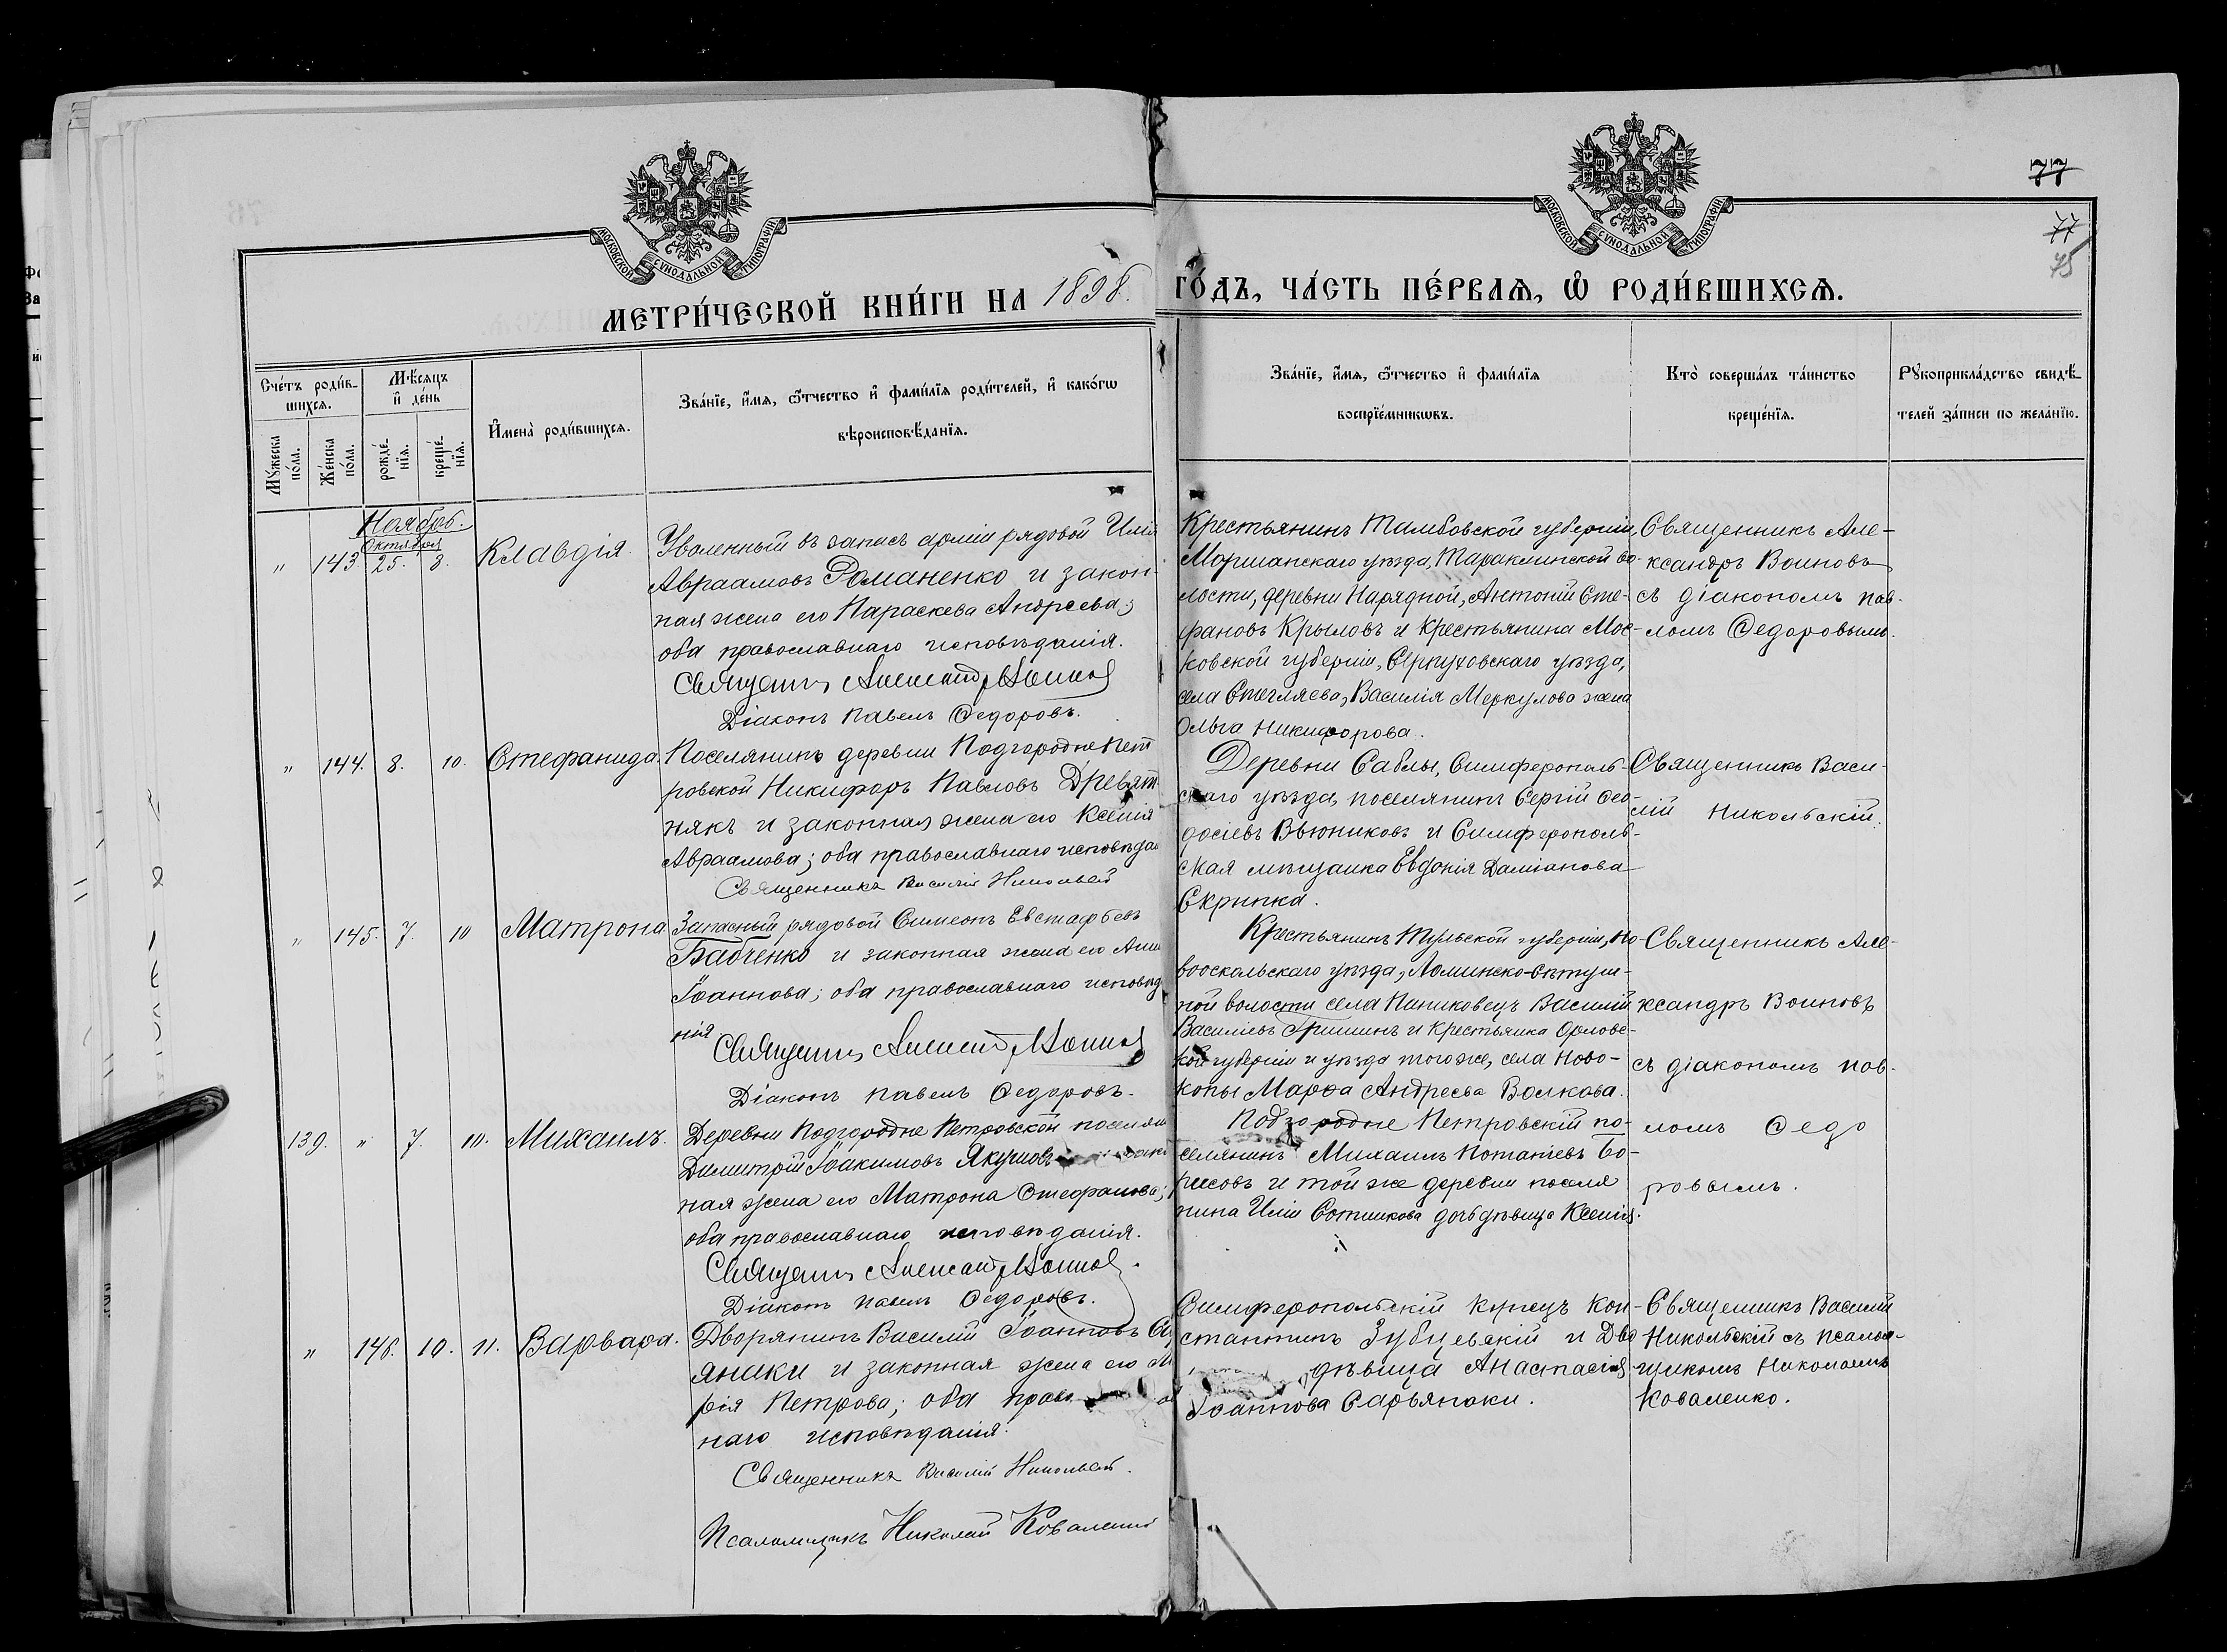 77
77
75
МОСКОВСКОЙ СѴНОДАЛЬНОЙ ТИПОГРАФІИ
МОСКОВСКОЙ СѴНОДАЛЬНОЙ ТИПОГРАФІИ
МЕТРИ́ЧЕСКОЙ КНИ́ГИ НА 1898. ГО́ДЪ, ЧА́СТЬ ПЕ́РВАѦ, Ѡ РОДИ́ВШИХСѦ.
Сче́тъ роди́в-
шихсѧ.
Мѣ́сѧцъ
и҆ де́нь
Мꙋ́жеска
по́ла.
Же́нска
по́ла.
рожде́-
нїѧ.
креще́-
нїѧ.
И҆мена̀ роди́вшихсѧ.
Зва́нїе, и҆́мѧ, ѻ҆́тчество и҆ фами́лїѧ роди́телей, и҆ како́гѡ
вѣроисповѣ́данїѧ.
Зва́нїе, и҆́мѧ, ѻ҆́тчество и҆ фами́лїѧ
воспрїе́мникѡвъ.
Кто̀ соверша́лъ та́инство
креще́нїѧ.
Рꙋкоприкла́дство свидѣ́-
телей за́писи по жела́нїю.
Ноябрь.
Октября
" 143 25. 8. Клавдія.
Уволенный въ запасъ арміи рядовой Илія
Авраамовъ Романенко и закон-
ная жена его Параскева Андреева;
оба православнаго исповѣданія.
Священникъ Александръ Воиновъ
Діаконъ Павелъ Ѳедоровъ.
Крестьянинъ Тамбовской губерніи,
Моршанскаго уѣзда, Тараклинской во-
лости, деревни Нарядной, Антоній Сте-
фановъ Крыловъ и крестьянина Мос-
ковской губерніи, Серпуховскаго уѣзда,
села Стегляева, Василія Меркулова жена
Ольга Никифорова.
Священникъ Але-
ксандръ Воиновъ
съ діакономъ Пав-
ломъ Ѳедоровымъ.
" 144. 8. 10. Стефанида.
Поселянинъ деревни Подгородне Пет
ровской Никифоръ Павловъ Древят
някъ и законная жена его Ксенія
Авраамова; оба православнаго исповѣда
Священникъ Василій Никольскій
Деревни Саблы, Симферополь-
скаго уѣзда, поселянинъ Сергій Ѳео-
досіевъ Вьюниковъ и Симферополь-
ская мѣщанка Евдокія Даміанова
Скрыпка.
Священникъ Васи-
лій Никольскій.
" 145. 7. 10 Матрона
Запасный рядовой Симеонъ Евстафьевъ
Бабченко и законная жена его Анна
Іоаннова; оба православнаго исповѣд
нія.
Священникъ Александръ Воиновъ
Діаконъ Павелъ Ѳедоровъ.
Крестьянинъ Тульской губерніи, Но-
вооскольскаго уѣзда,
ной волости села Паниковецъ Василій
Василіевъ Гришинъ и крестьянка Орловс-
кой губерніи и уѣзда того же, села Ново-
копы Марѳа Андреева Волкова.
Священникъ Але-
ксандръ Воиновъ
съ діакономъ Пав-
ломъ Ѳедо
ровымъ.
139. " 7. 10. Михаилъ.
Деревни Подгородне Петровской поселян
Димитрій Іоакимовъ Якушовъ
ная жена его Матрона Стефанова;
оба православнаго исповѣданія.
Священникъ Александръ Воиновъ.
Діаконъ Павелъ Ѳедоровъ.
Подгородне Петровскій по-
селянинъ Михаилъ Потапіевъ Бо-
рисовъ и той же деревни поселя
нина Иліи Сотникова дочь дѣвица Ксенія.
" 146. 10. 11. Варвара.
Дворянинъ Василій Іоанновъ Са
янаки и законная жена его Ма
рія Петрова; оба право
наго исповѣданія.
Священникъ Василій Никольскій.
Псаломщикъ Николай Коваленко
Симферопольскій купецъ Кон-
стантинъ Зубчевскій и Дво
дѣвица Анастасія
Іоаннова Сарьянаки.
Священникъ Василій
Никольскій съ псалом-
щикомъ Николаемъ
Коваленко.